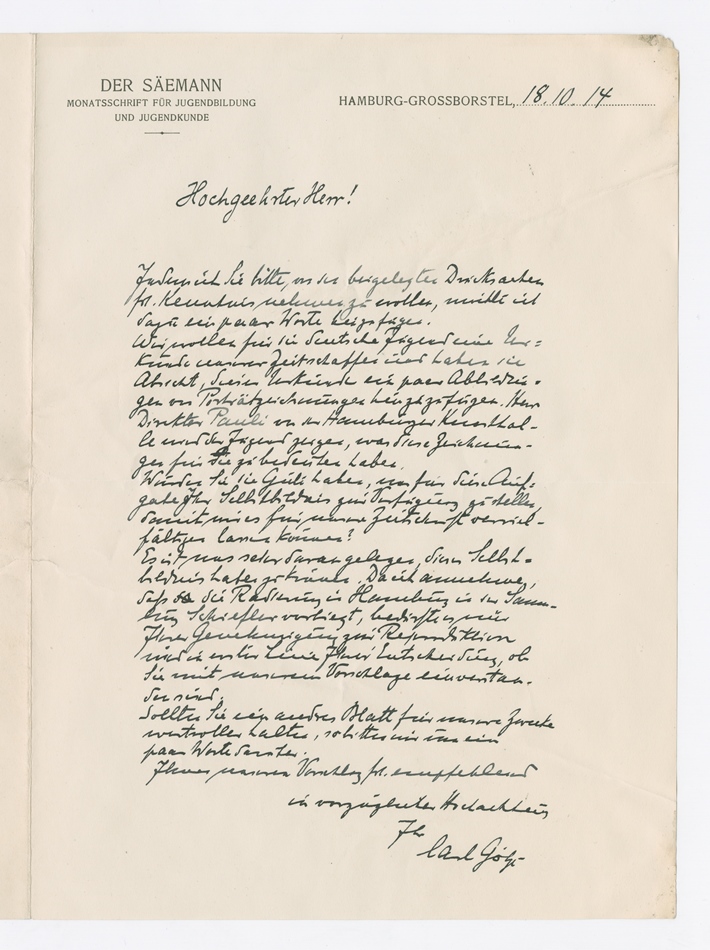 DER SÄEMANN
MONATSSCHRIFT FÜR JUGENDBILDUNG
UND JUGENDKUNDE
HAMBURG-GROSSBORSTEL, 18.10.14
Hochgeehrter Herr!
Indem ich Sie bitte, von den beigelegten Drucksachen
frl. Kenntnis nehmen zu wollen, möchte ich
dazu ein paar Worte hinzufügen.
Wir wollen für die deutsche Jugend eine Ur=
kunde unserer Zeit schaffen und haben die
Absicht, dieser Urkunde ein paar Abbildun=
gen von Porträtzeichnungen hinzuzufügen. Herr
Direktor Pauli von der Hamburger Kunsthal-
le wird der Jugend zeigen, was diese Zeichnun-
gen für sie zu bedeuten haben.
Würden Sie die Güte haben, uns für diese Auf=
gabe Ihr Selbstbildnis zur Verfügung zu stellen,
damit wir es für unsere Zeitschrift verviel-
fältigen lassen können?
Es ist uns sehr daran gelegen, dieses Selbst=
bildnis haben zu können. Da ich annehme,
daß die Radierung in Hamburg in der Samm-
lung Schiefler vorliegt, bedürfte es nur
Ihrer Genehmigung zur Reproduktion
und in erster Linie Ihrer Entscheidung, ob
Sie mit unserem Vorschlage einverstan-
den sind.
Sollten Sie ein andres Blatt für unsere Zwecke
wertvoller halten, so bitten wir um ein
paar Worte darüber.
Ihnen unseren Vorschlag frl. empfehlend
in vorzüglicher Hochachtung
Ihr
Carl Götze